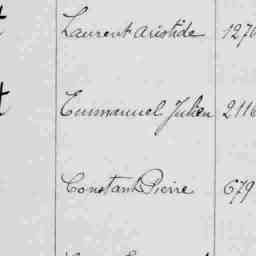 Laurent Aristide 1270
Emmanuel Julien 2116
Constant Pierre 679